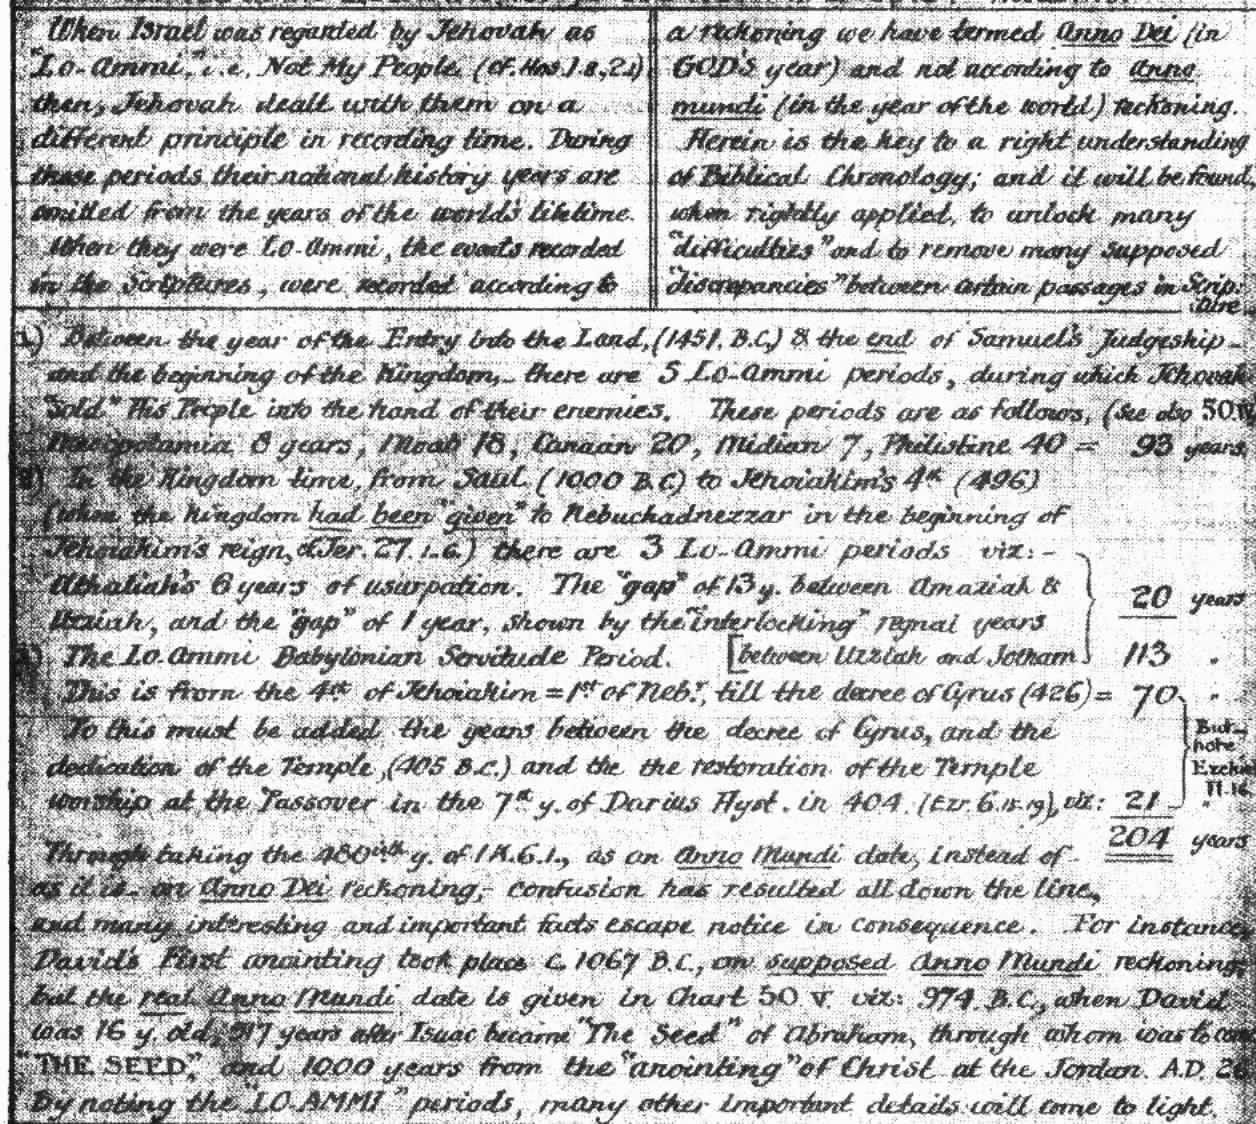 When Israel was regarded by Jehovah as
"Lo-Ammi," i.e. Not My People (cf. Hos. 1.8,
then, Jehovah dealt with them on a
different principle in recording time. During
these periods their national history years are
omitted from the years of the world's lifetime.
When they were Lo-Ammi, the events recorded
in the Scriptures, were recorded according to
a reckoning we have termed Anno Dei (in
GOD'S year) and not according to Anno
mundi (in the year of the world) reckoning.
Herein is the key to a right understanding
of Biblical Chronology; and it will be found,
when rightly applied, to unlock many
"difficulties" and to remove many supposed
"discrepancies" between certain passages in Scrip-
ture.
Between the year of the Entry into the Land, (1451. B.C.) & the end of Samuel's Judgeship -
and the beginning of the Kingdom, - there are 5 Lo-Ammi periods, during which Jehovah
"sold" His People into the hand of their enemies. These periods are as follows, (see also 50.
Mesopotamia 8 years, Moab 18, Canaan 20, Midian 7, Philistine 40 = 93 years
In the Kingdom time, from Saul (1000 B.C.) to Jehoiakim's 4th (496)
(when the kingdom had been "given" to Nebuchadnezzar in the beginning of
Jehoiakim's reign, cf. Jer. 27. 1-6.) there are 3 Lo-Ammi periods viz: -
Athaliah's 6 years of usurpation. The "gap" of 13 y. between Amaziah &
Uzziah, and the "gap" of 1 year, shown by the "interlocking" regnal years
20 years
The Lo-Ammi Babylonian Servitude Period. [between Uzziah and Jotham 113 "
This is from the 4th of Jehoiakim = 1st of Nebr., till the decree of Cyrus (426) = 70 "
To this must be added the years between the decree of Cyrus, and the
dedication of the Temple, (405 B.C.) and the the restoration of the Temple
worship at the Passover in the 7th y. of Darius Hyst. in 404. (Ezr. 6.15-19), viz: 21 "
But
note
Ezekiel
11.16
204 years
Through taking the 480th y. of 1 K. 6.1., as an Anno Mundi date, instead of -
as it is - an Anno Dei reckoning, - confusion has resulted all down the line,
and many interesting and important facts escape notice in consequence. For instance,
David's First anointing took place c. 1067 B.C., on supposed Anno Mundi reckoning;
but the real Anno Mundi date is given in Chart 50 v. viz: 974 B.C., when David
was 16 y. old, 917 years after Isaac became "The Seed" of Abraham, through whom was to come
"THE SEED," and 1000 years from the "anointing" of Christ at the Jordan. A.D.
By noting the "LO-AMMI" periods, many other important details will come to light.